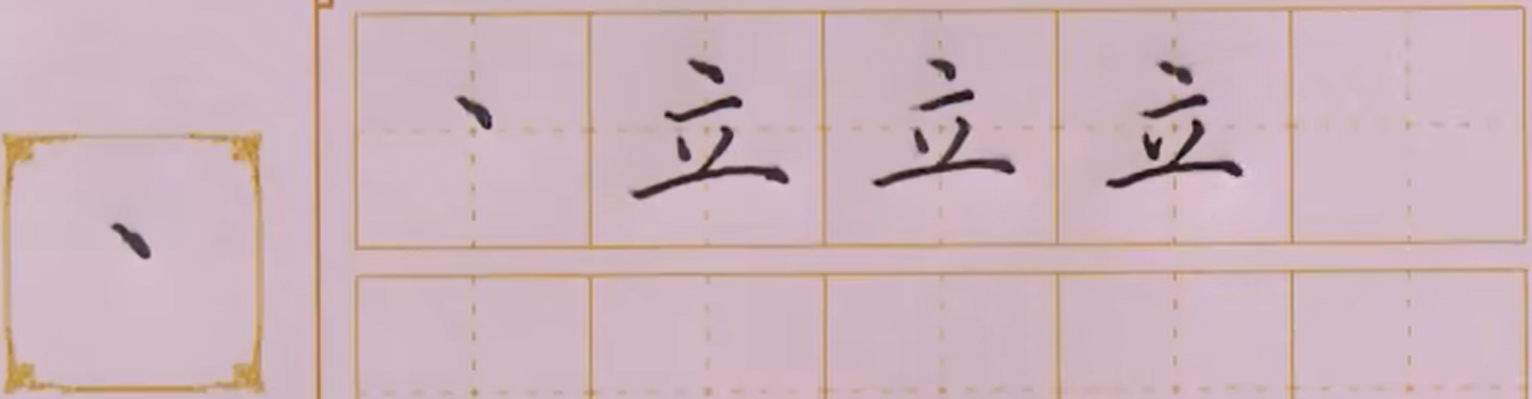 丶
丶立立立